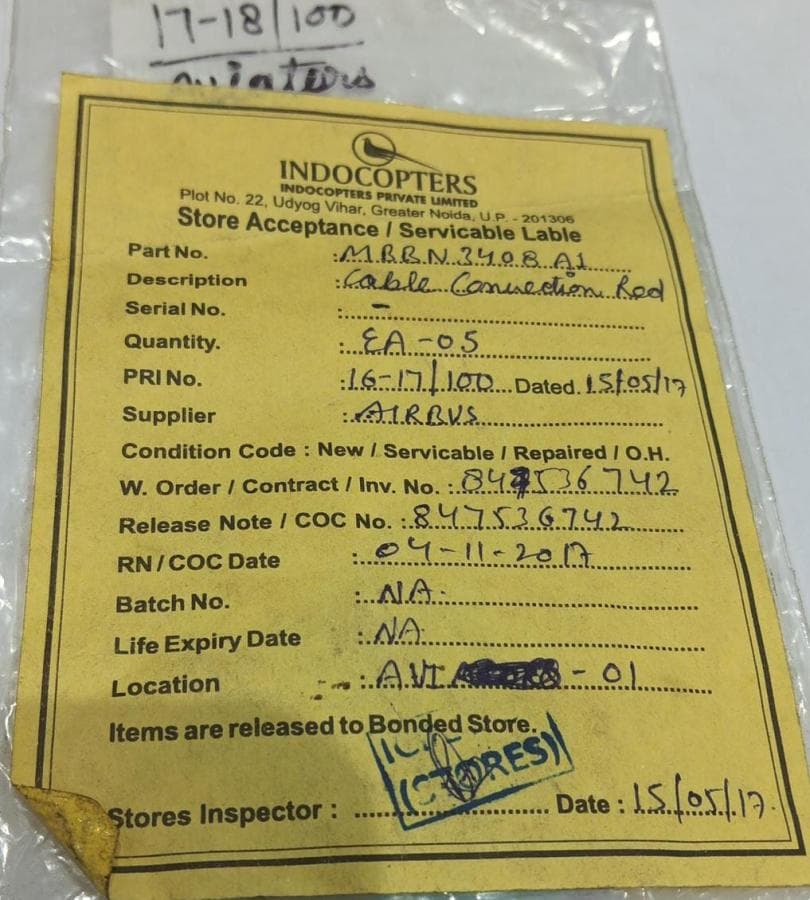 17-18/100
aviators
INDOCOPTERS
INDOCOPTERS PRIVATE LIMITED
Plot No. 22, Udyog Vihar, Greater Noida, U.P. - 201306
Store Acceptance / Servicable Lable
Part No. : MBBN3408A1
Description : Cable Connection Red
Serial No. : -
Quantity. : EA-05
PRI No. : 16-17/100 Dated. 15/05/17
Supplier : AIRBUS
Condition Code : New / Servicable / Repaired / O.H.
W. Order / Contract / Inv. No. : 847536742
Release Note / COC No. : 847536742
RN / COC Date : 04-11-2017
Batch No. : NA
Life Expiry Date : NA
Location : AVI - 01
Items are released to Bonded Store.
(STORES)
Stores Inspector : Date : 15/05/17